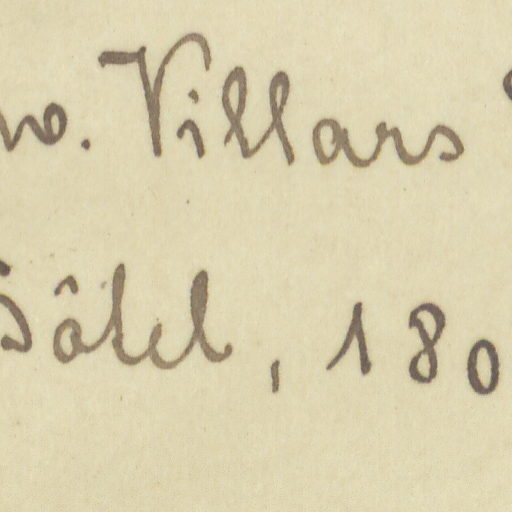 no. Villars
Hôtel, 180